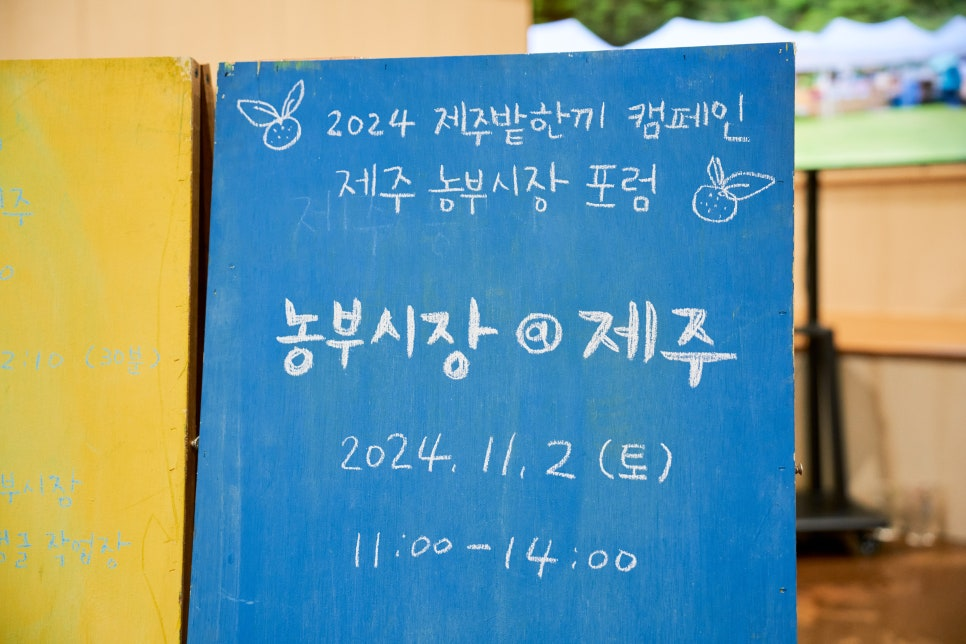 2024 제주밭한끼 캠페인
제주 농부시장 포럼
농부시장 @ 제주
2024. 11. 2 (토)
11:00-14:00
주
2/10 (30분)
부시장
작업장